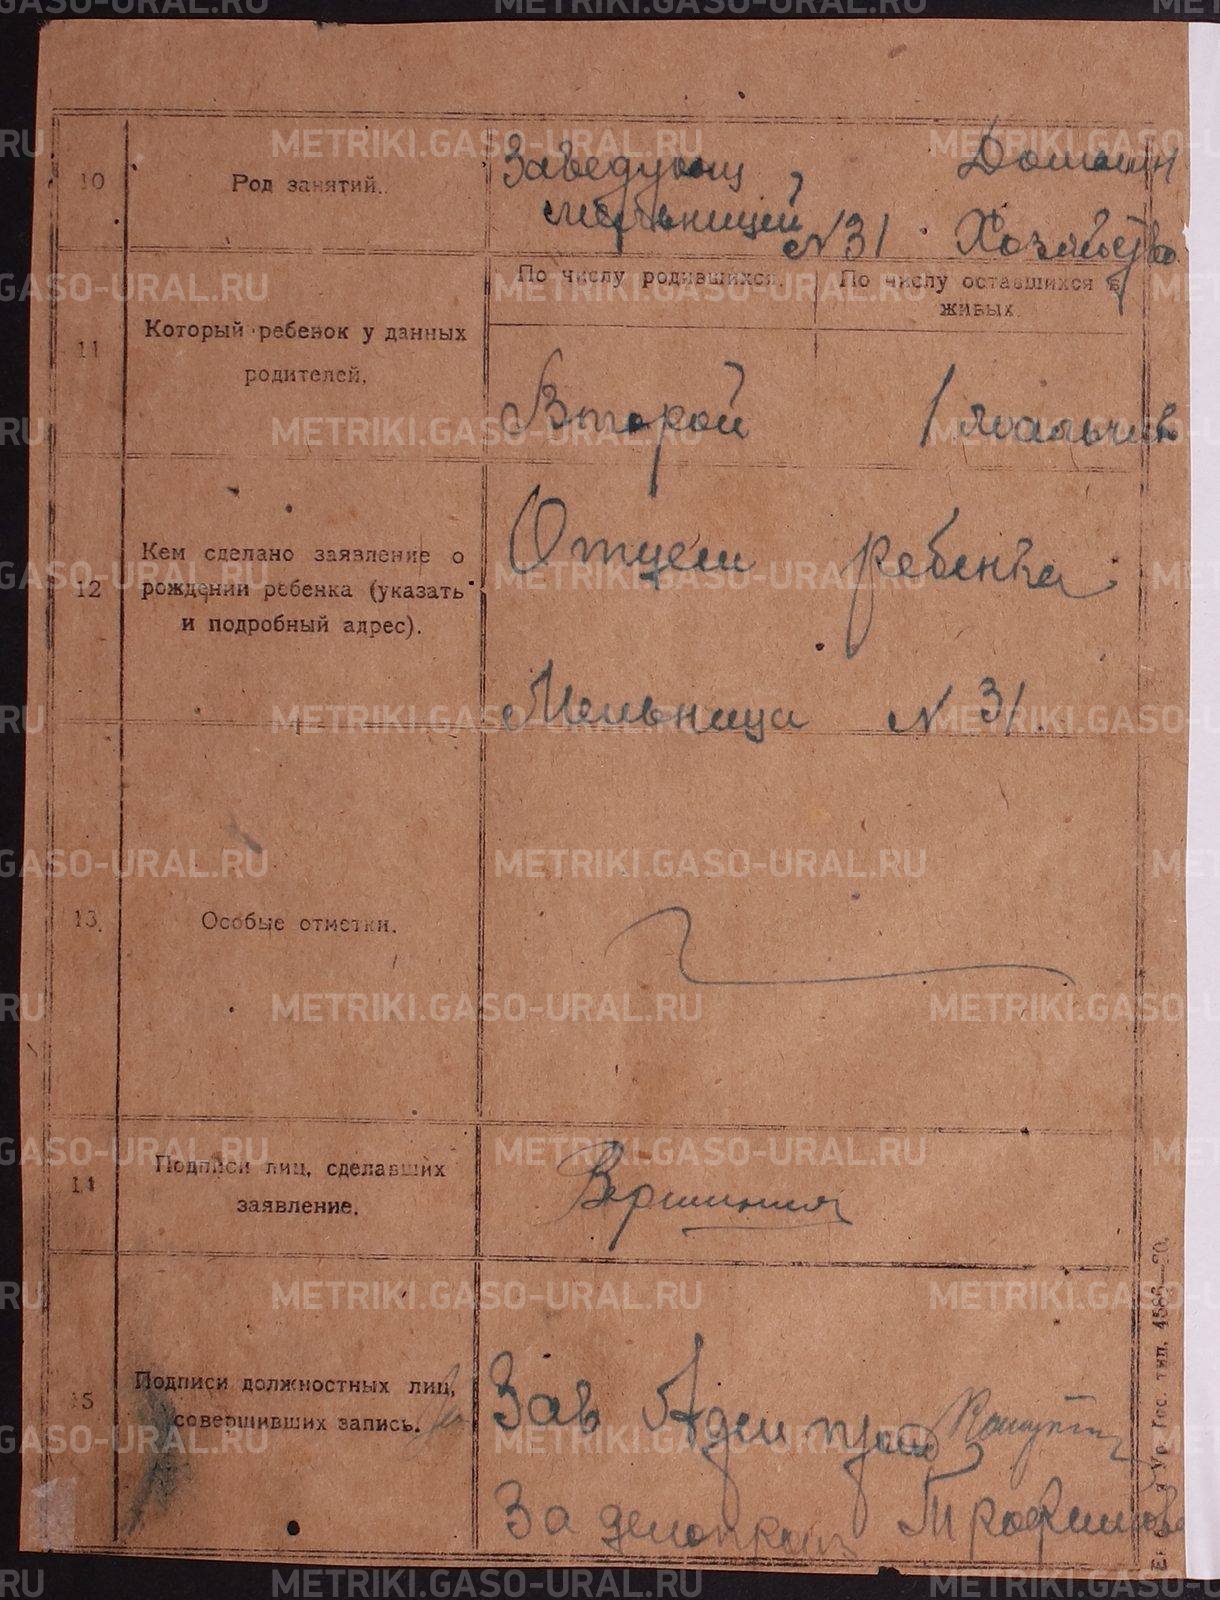 10
Род занятий.
Заведующ
мельницей
№ 31
Домашн
Хозяйство
11
Который ребенок у данных
родителей.
По числу родившихся.
По числу оставшихся в
живых.
Второй
1 мальчик
12
Кем сделано заявление о
рождении ребенка (указать
и подробный адрес).
Отцем ребенка
Мельница № 31.
13.
Особые отметки.
14
Подписи лиц, сделавших
заявление.
Вершинин
15
Подписи должностных лиц,
совершивших запись.
Зав Адм
За делопроиз Трофимова
Ур. Гос. тип. 4586—20.
METRIKI.GASO-URAL.RU